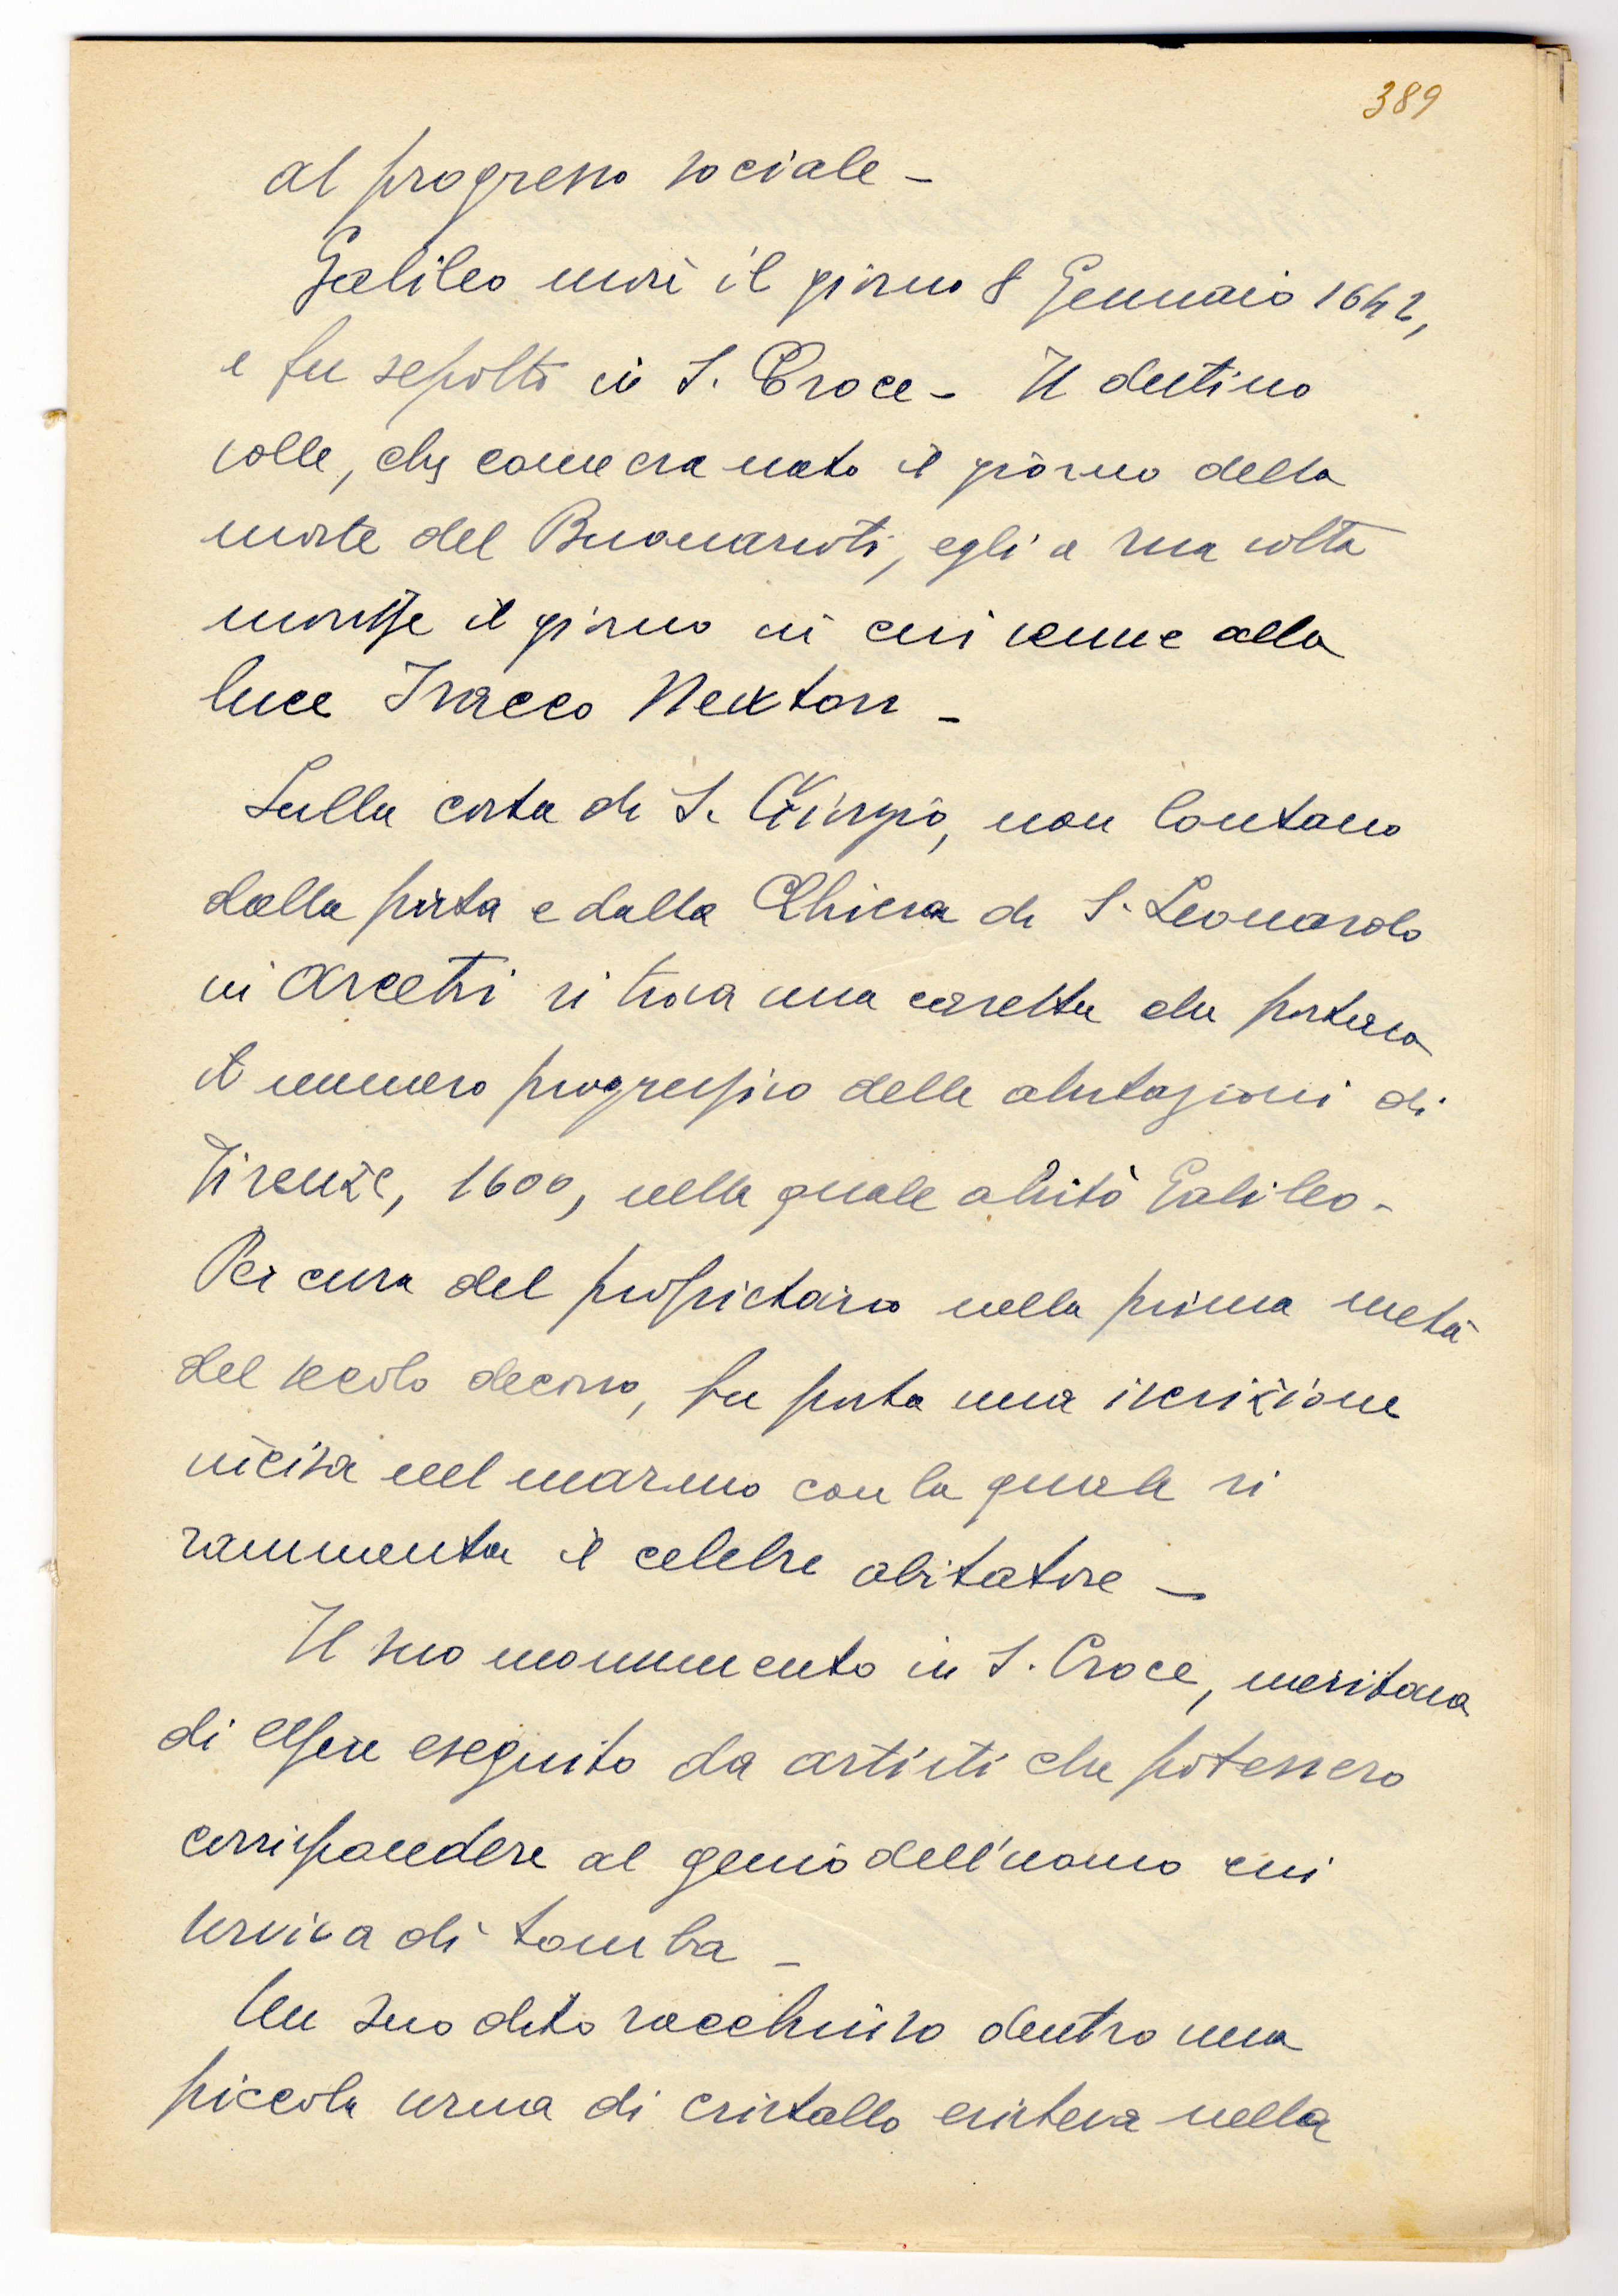 389
al progresso sociale -
Galileo morì il giorno 8 Gennaio 1642,
e fu sepolto in S. Croce - Il destino
volle, che come era nato il giorno della
morte del Buonarroti, egli a sua volta
morisse il giorno in cui venne alla
luce Isacco Newton -
Sulla costa di S. Giorgio, non lontano
dalla porta e dalla Chiesa di S. Leonardo
in Arcetri si trova una casetta che portava
il numero progressivo delle abitazioni di
Firenze, 1600, nella quale abitò Galileo -
Per cura del proprietario nella prima metà
del secolo decorso, fu posta una iscrizione
incisa nel marmo con la quale si
rammenta il celebre abitatore -
Il suo monumento in S. Croce, meritava
di essere eseguito da artisti che potessero
corrispondere al genio dell'uomo cui
serviva di tomba -
Un suo dito racchiuso dentro una
piccola urna di cristallo esisteva nella